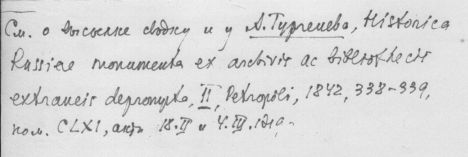 См. о высылке сводку и у А. Тургенева, Historica
Russiae monumenta ex archivis ac bibliothecis
extraneis deprompta, II, Petropoli, 1842, 338-339,
ном. CLXI, акты 18.II и 4.III.1719.